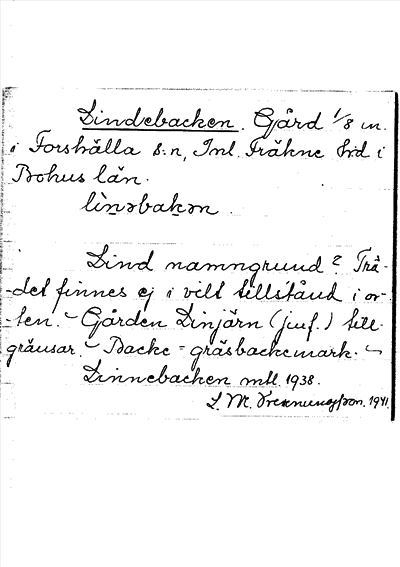 Lindebacken. Gård 1/8 m.
i Forshälla s:n, Inl. Fräkne hrd i
Bohus län.
lìn̲əbak̲ən.
Lind namngrund? Trä-
-det finnes ej i vilt tillstånd i or-
-ten. - Gården Linjärn (jmf.) till-
gränsar. - Backe = gräsbackemark. -
Linnebacken mtl. 1938.
L. M. 1941.